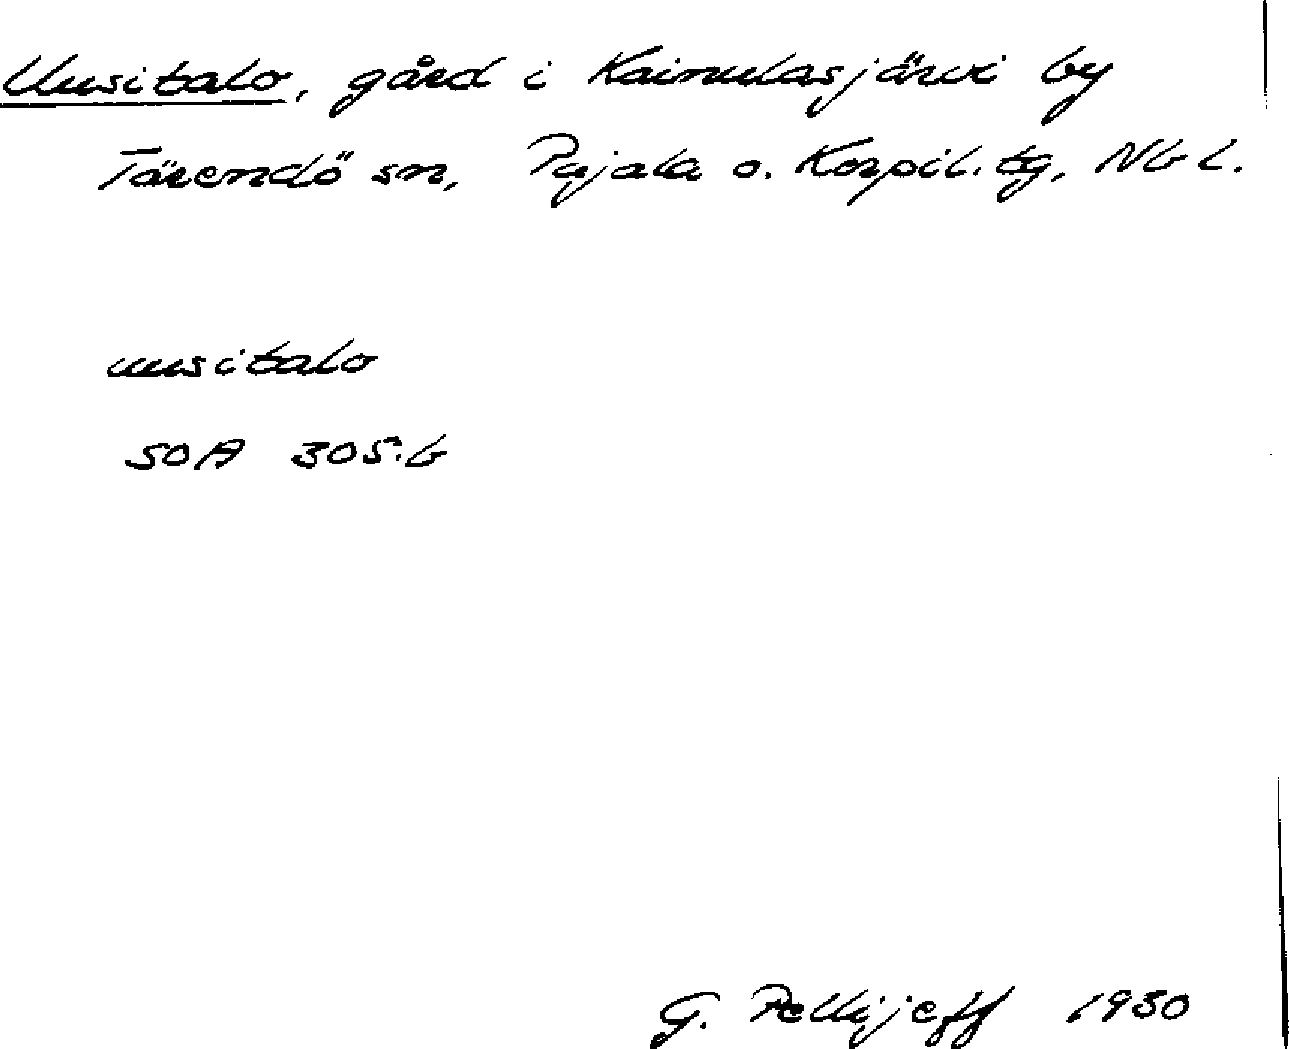 Uusitalo, gård i Kainulasjärvi by
Tärendö sn, Pajala o. Korpil. tg, Nb L.
uusitalo
SOA 305:b
G. Pellijeff 1950